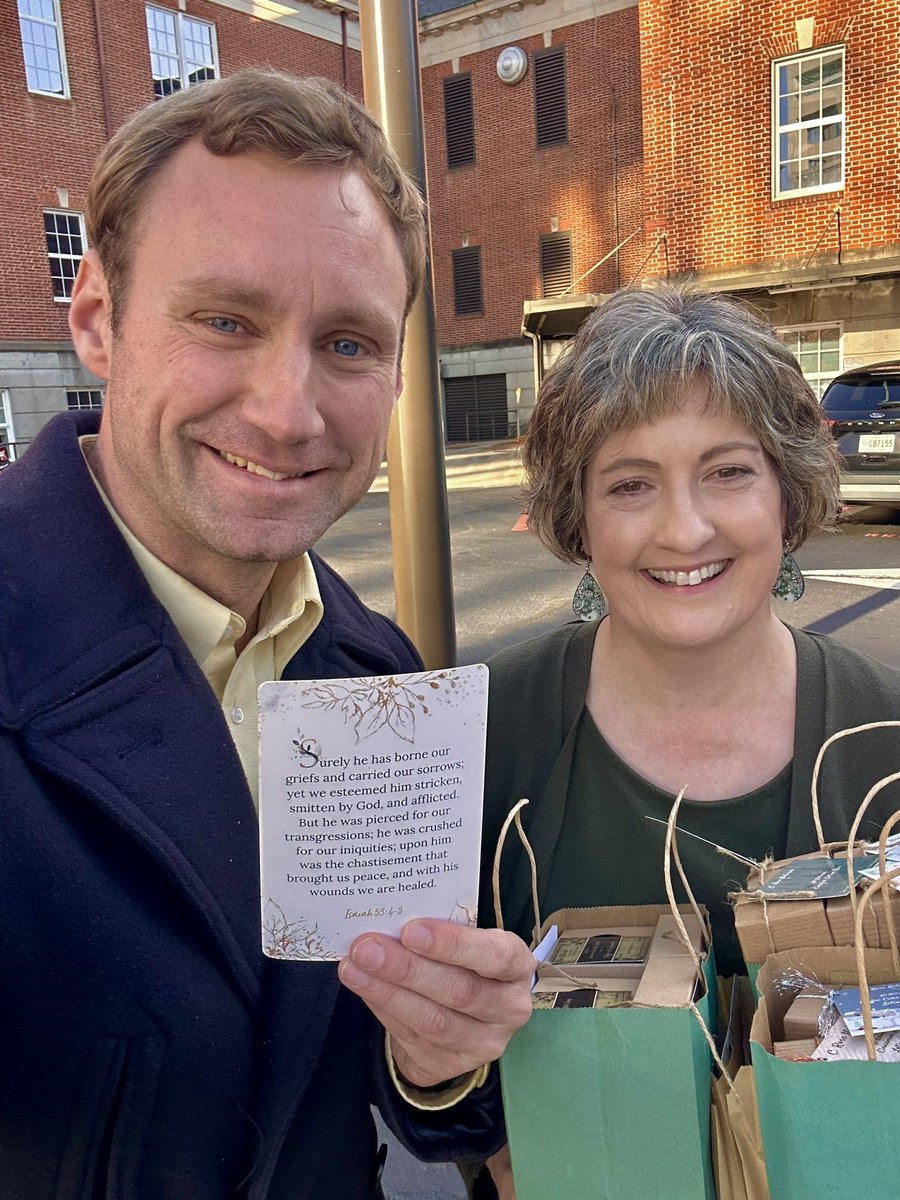 Surely he has borne our
griefs and carried our sorrows;
yet we esteemed him stricken,
smitten by God, and afflicted.
But he was pierced for our
transgressions; he was crushed
for our iniquities; upon him
was the chastisement that
brought us peace, and with his
wounds we are healed.
Isaiah 53:4-5